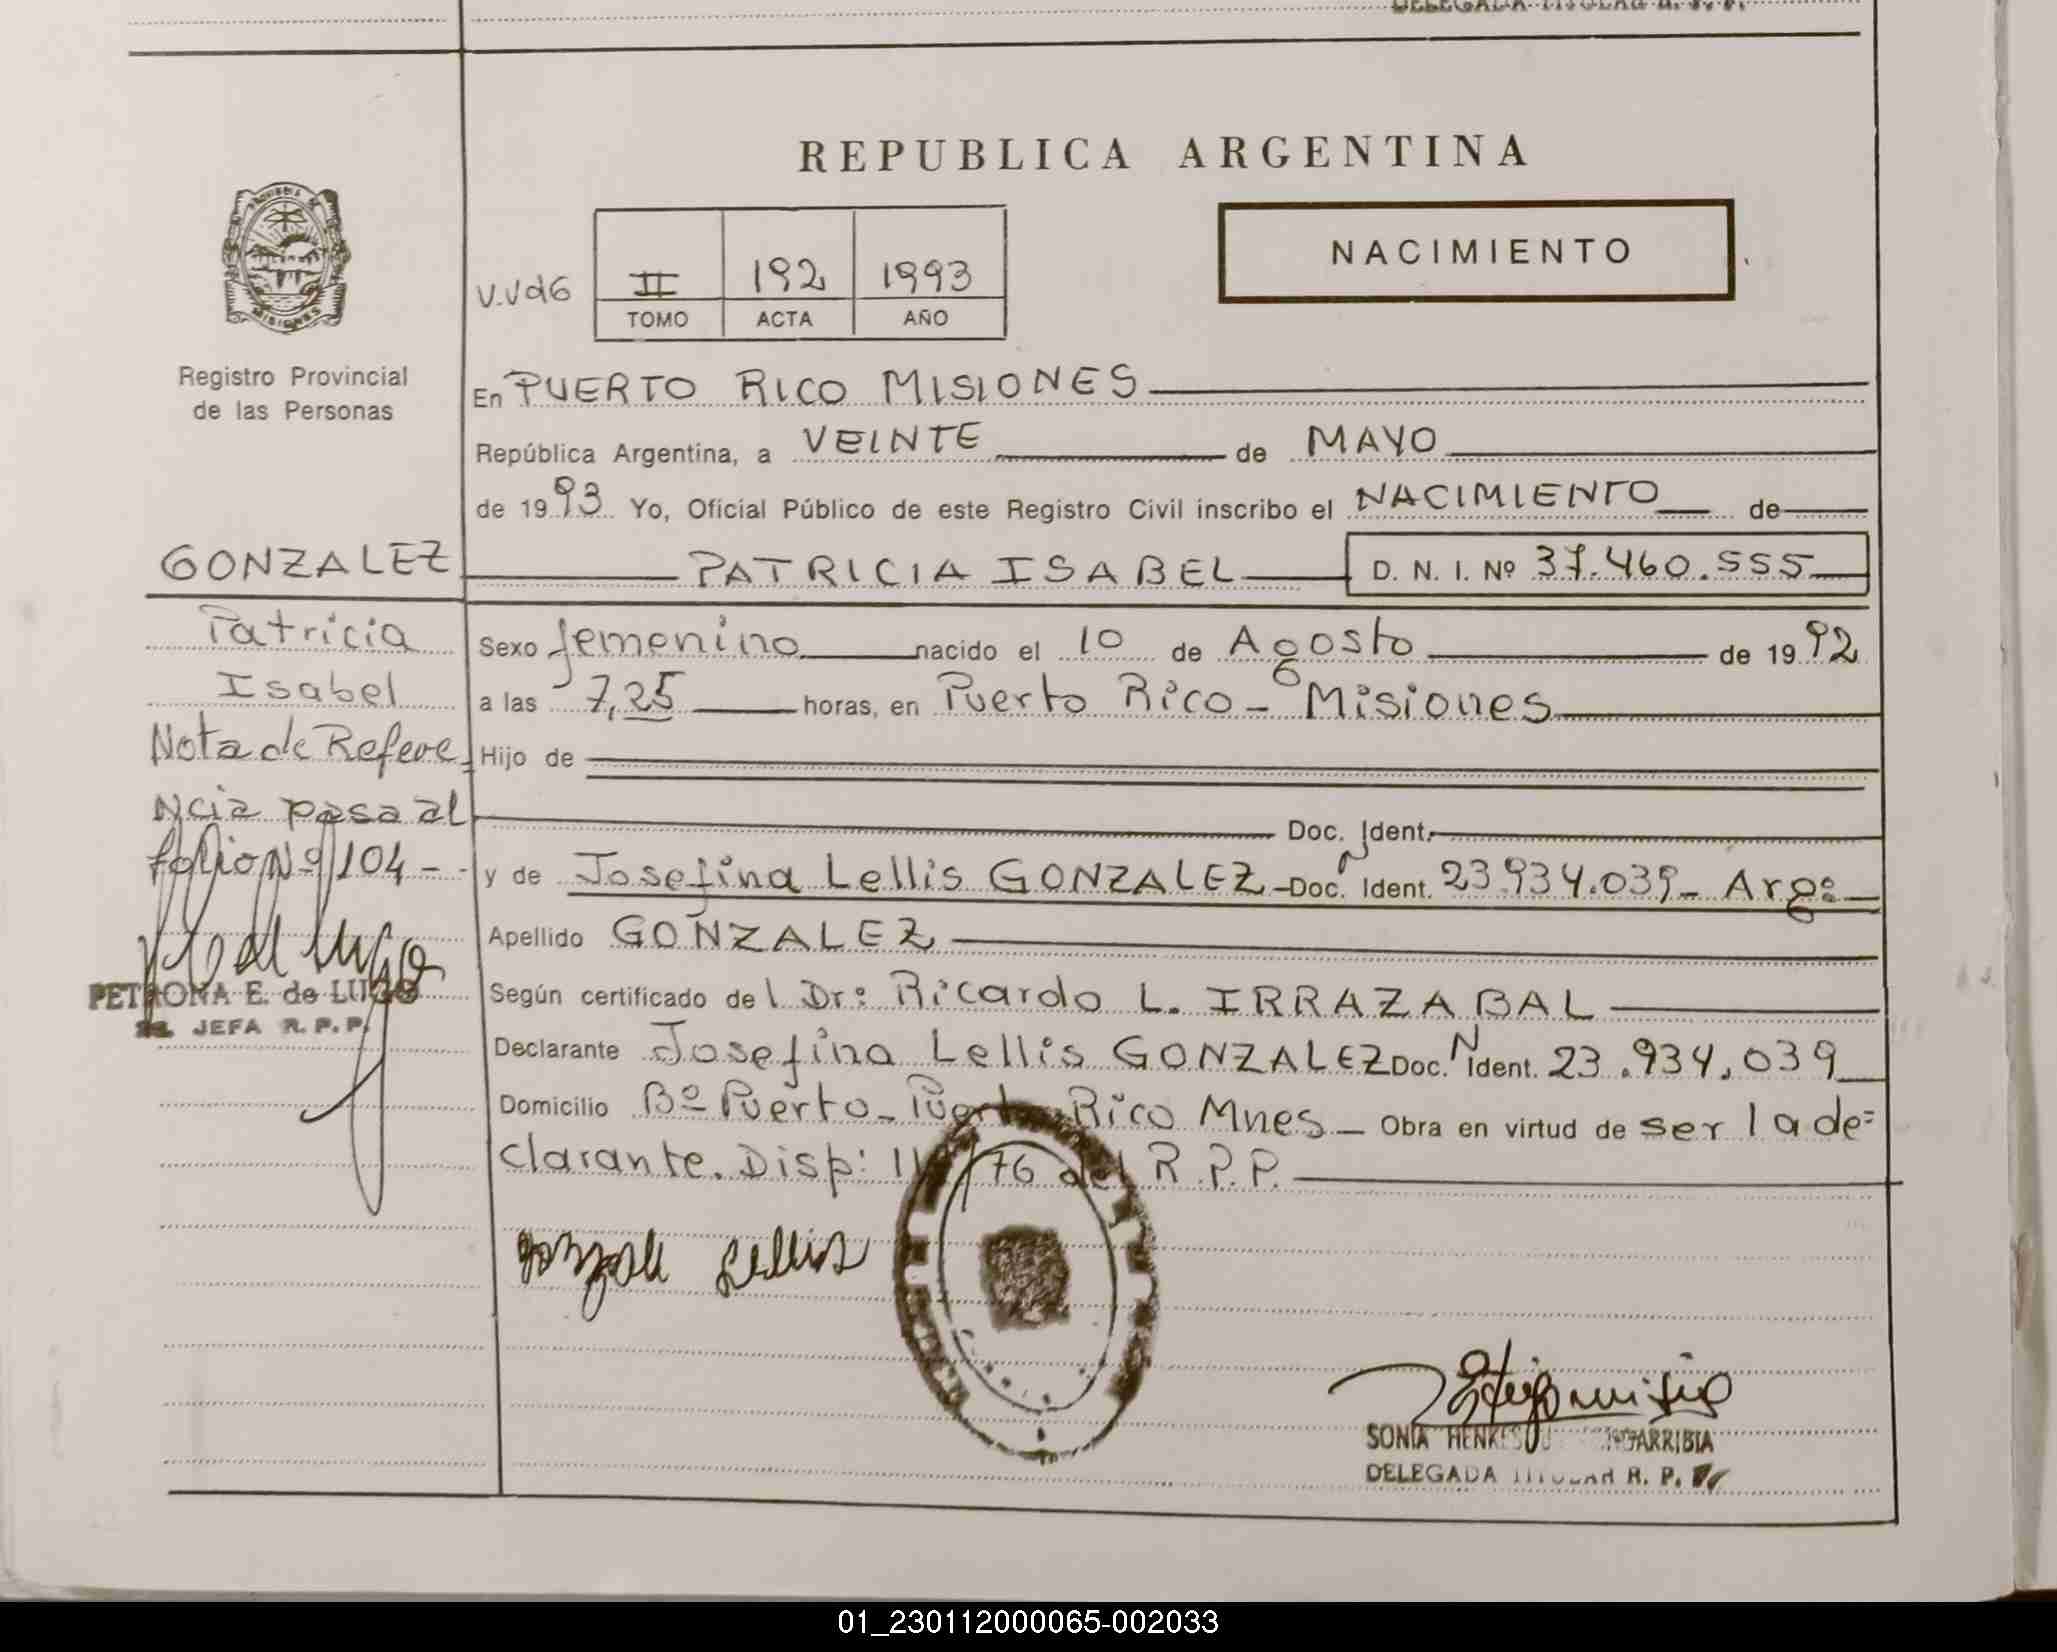 DELEGADA TITULAR R. P. P.
REPUBLICA ARGENTINA
NACIMIENTO
PROVINCIA DE
MISIONES
V.Vd6 II 192 1993
TOMO ACTA AÑO
Registro Provincial
de las Personas
En PUERTO RICO MISIONES
República Argentina, a VEINTE de MAYO
de 1993 Yo, Oficial Público de este Registro Civil inscribo el NACIMIENTO de
GONZALEZ PATRICIA ISABEL D. N. I. Nº 37.460.555
Patricia
Isabel
Nota de Refere_
Ncia pasa al
folio Nº 104 - -
PETRONA E. de LUGO
JEFA R. P. P.
Sexo femenino nacido el 10 de Agosto de 1992
a las 7,25 horas, en Puerto Rico - Misiones
Hijo de
Doc. Ident.
y de Josefina Lellis GONZALEZ - Doc. Ident. 23.934.039 - Arg:
Apellido GONZALEZ
Según certificado de l Dr: Ricardo L. IRRAZABAL
Declarante Josefina Lellis GONZALEZ Doc. N Ident. 23.934.039
Domicilio Bº Puerto - Puerto Rico Mnes - Obra en virtud de ser la de=
clarante. Disp: /76 del R.P.P.
Gonzalez Lellis
SONIA HENKES
DELEGADA TITULAR R. P. P.
01_230112000065-002033